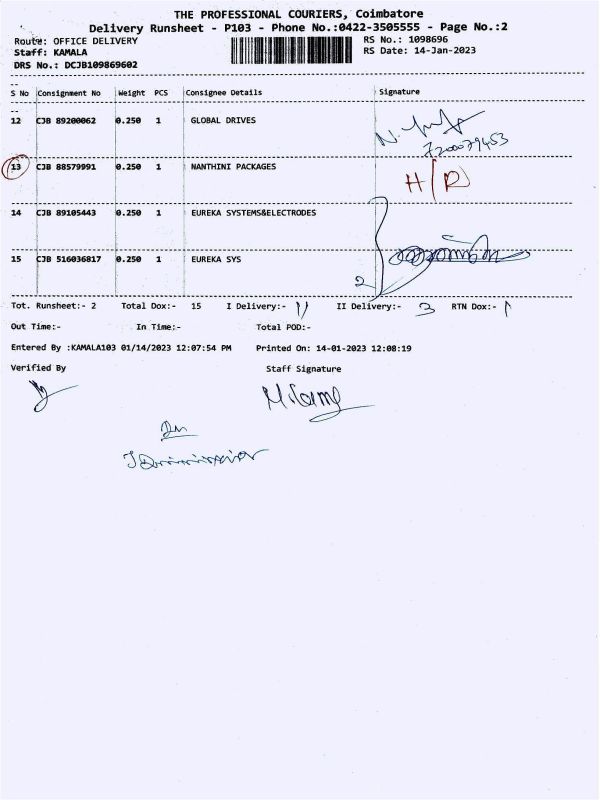 THE PROFESSIONAL COURIERS, Coimbatore
Delivery Runsheet - P103 - Phone No.:0422-3505555 - Page No.:2
Route: OFFICE DELIVERY
RS No.: 1098696
Staff: KAMALA
RS Date: 14-Jan-2023
DRS No.: DCJB109869602
S No Consignment No Weight PCS Consignee Details Signature
12 CJB 89200062 0.250 1 GLOBAL DRIVES
13 CJB 88579991 0.250 1 NANTHINI PACKAGES H/R
14 CJB 89105443 0.250 1 EUREKA SYSTEMS&ELECTRODES
15 CJB 516036817 0.250 1 EUREKA SYS
2
Tot. Runsheet:- 2 Total Dox:- 15 I Delivery:- 11 II Delivery:- 3 RTN Dox:- 1
Out Time:- In Time:- Total POD:-
Entered By :KAMALA103 01/14/2023 12:07:54 PM Printed On: 14-01-2023 12:08:19
Verified By Staff Signature